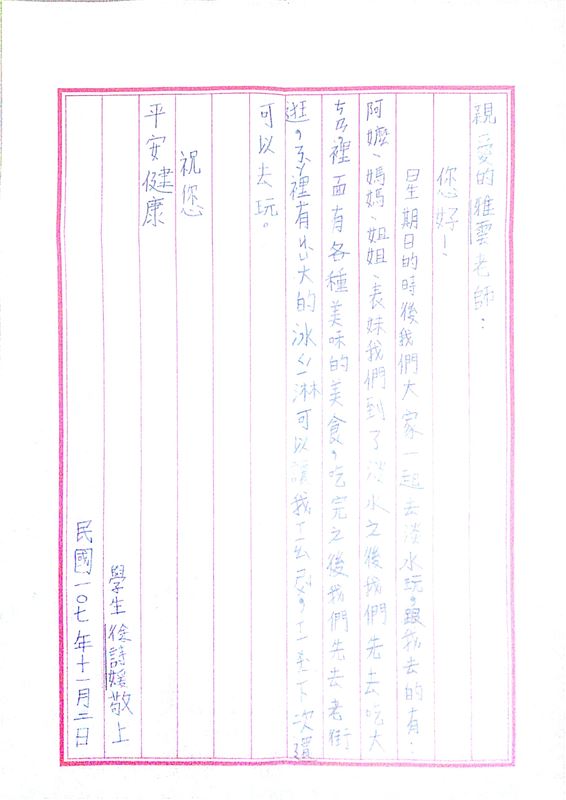 親愛的雅雲老師：
你好！
星期日的時後我們大家一起去淡水玩，跟我去的有：
阿嬤、媽媽、姐姐、表妹我們到了淡水之後我們先去吃大
ㄘㄢ裡面有各種美味的美食，吃完之後我們先去老街
逛，那裡有大的冰淋可以讓我下次還
可以去玩。
祝您
平安健康
學生徐詩媛敬上
民國一〇七年十一月二日